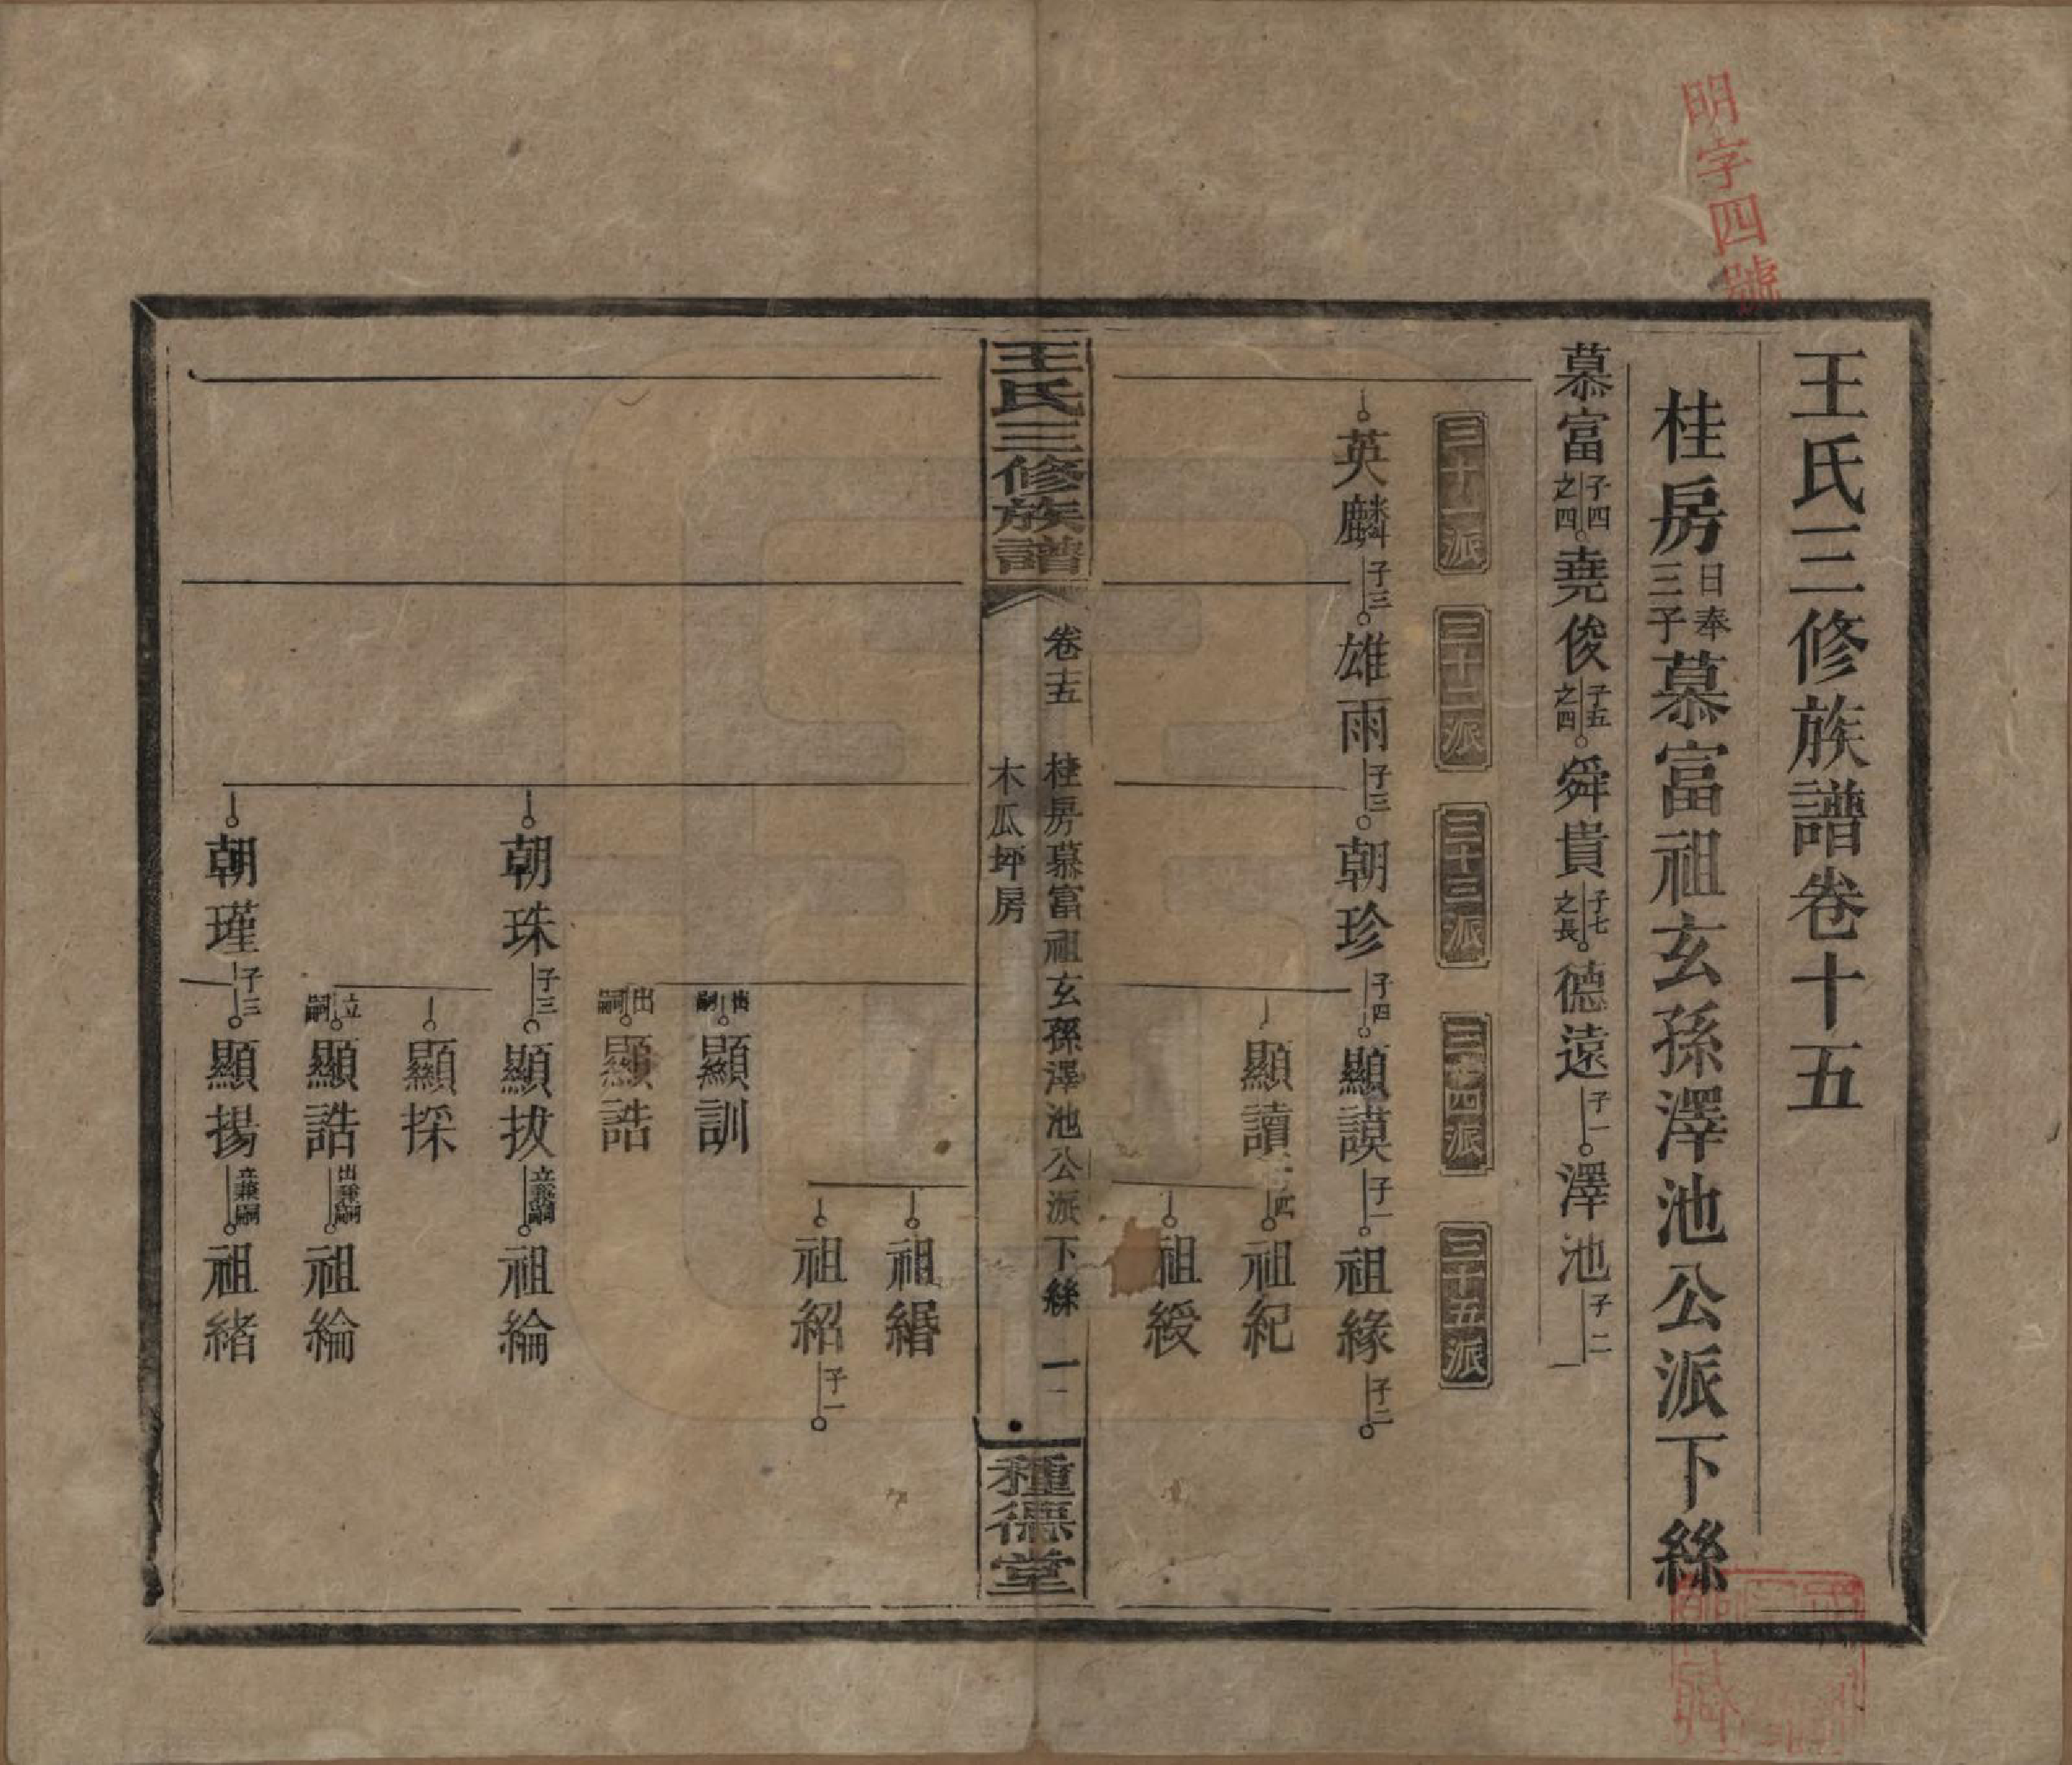 明字四號
王氏三修族譜卷十五
桂房日奉三子慕富祖玄孫澤池公派下絲
慕富子四之四堯俊子五之四舜貴子七之長德遠子一澤池子二
三十一派 三十二派 三十三派 三十四派 三十五派
英麟子三雄雨子三朝珍子四顯謨子一祖緣子二
顯讀子四祖紀
祖綬
王氏三修族譜 卷十五 桂房慕富祖玄孫澤池公派下絲 一
木瓜坪房
種德堂
祖緡
祖紹子一
顯訓
出嗣顯誥
朝珠子三顯拔立兼嗣祖綸
顯採
立嗣顯誥出兼嗣祖綸
朝瑾子三顯揚立兼嗣祖緒